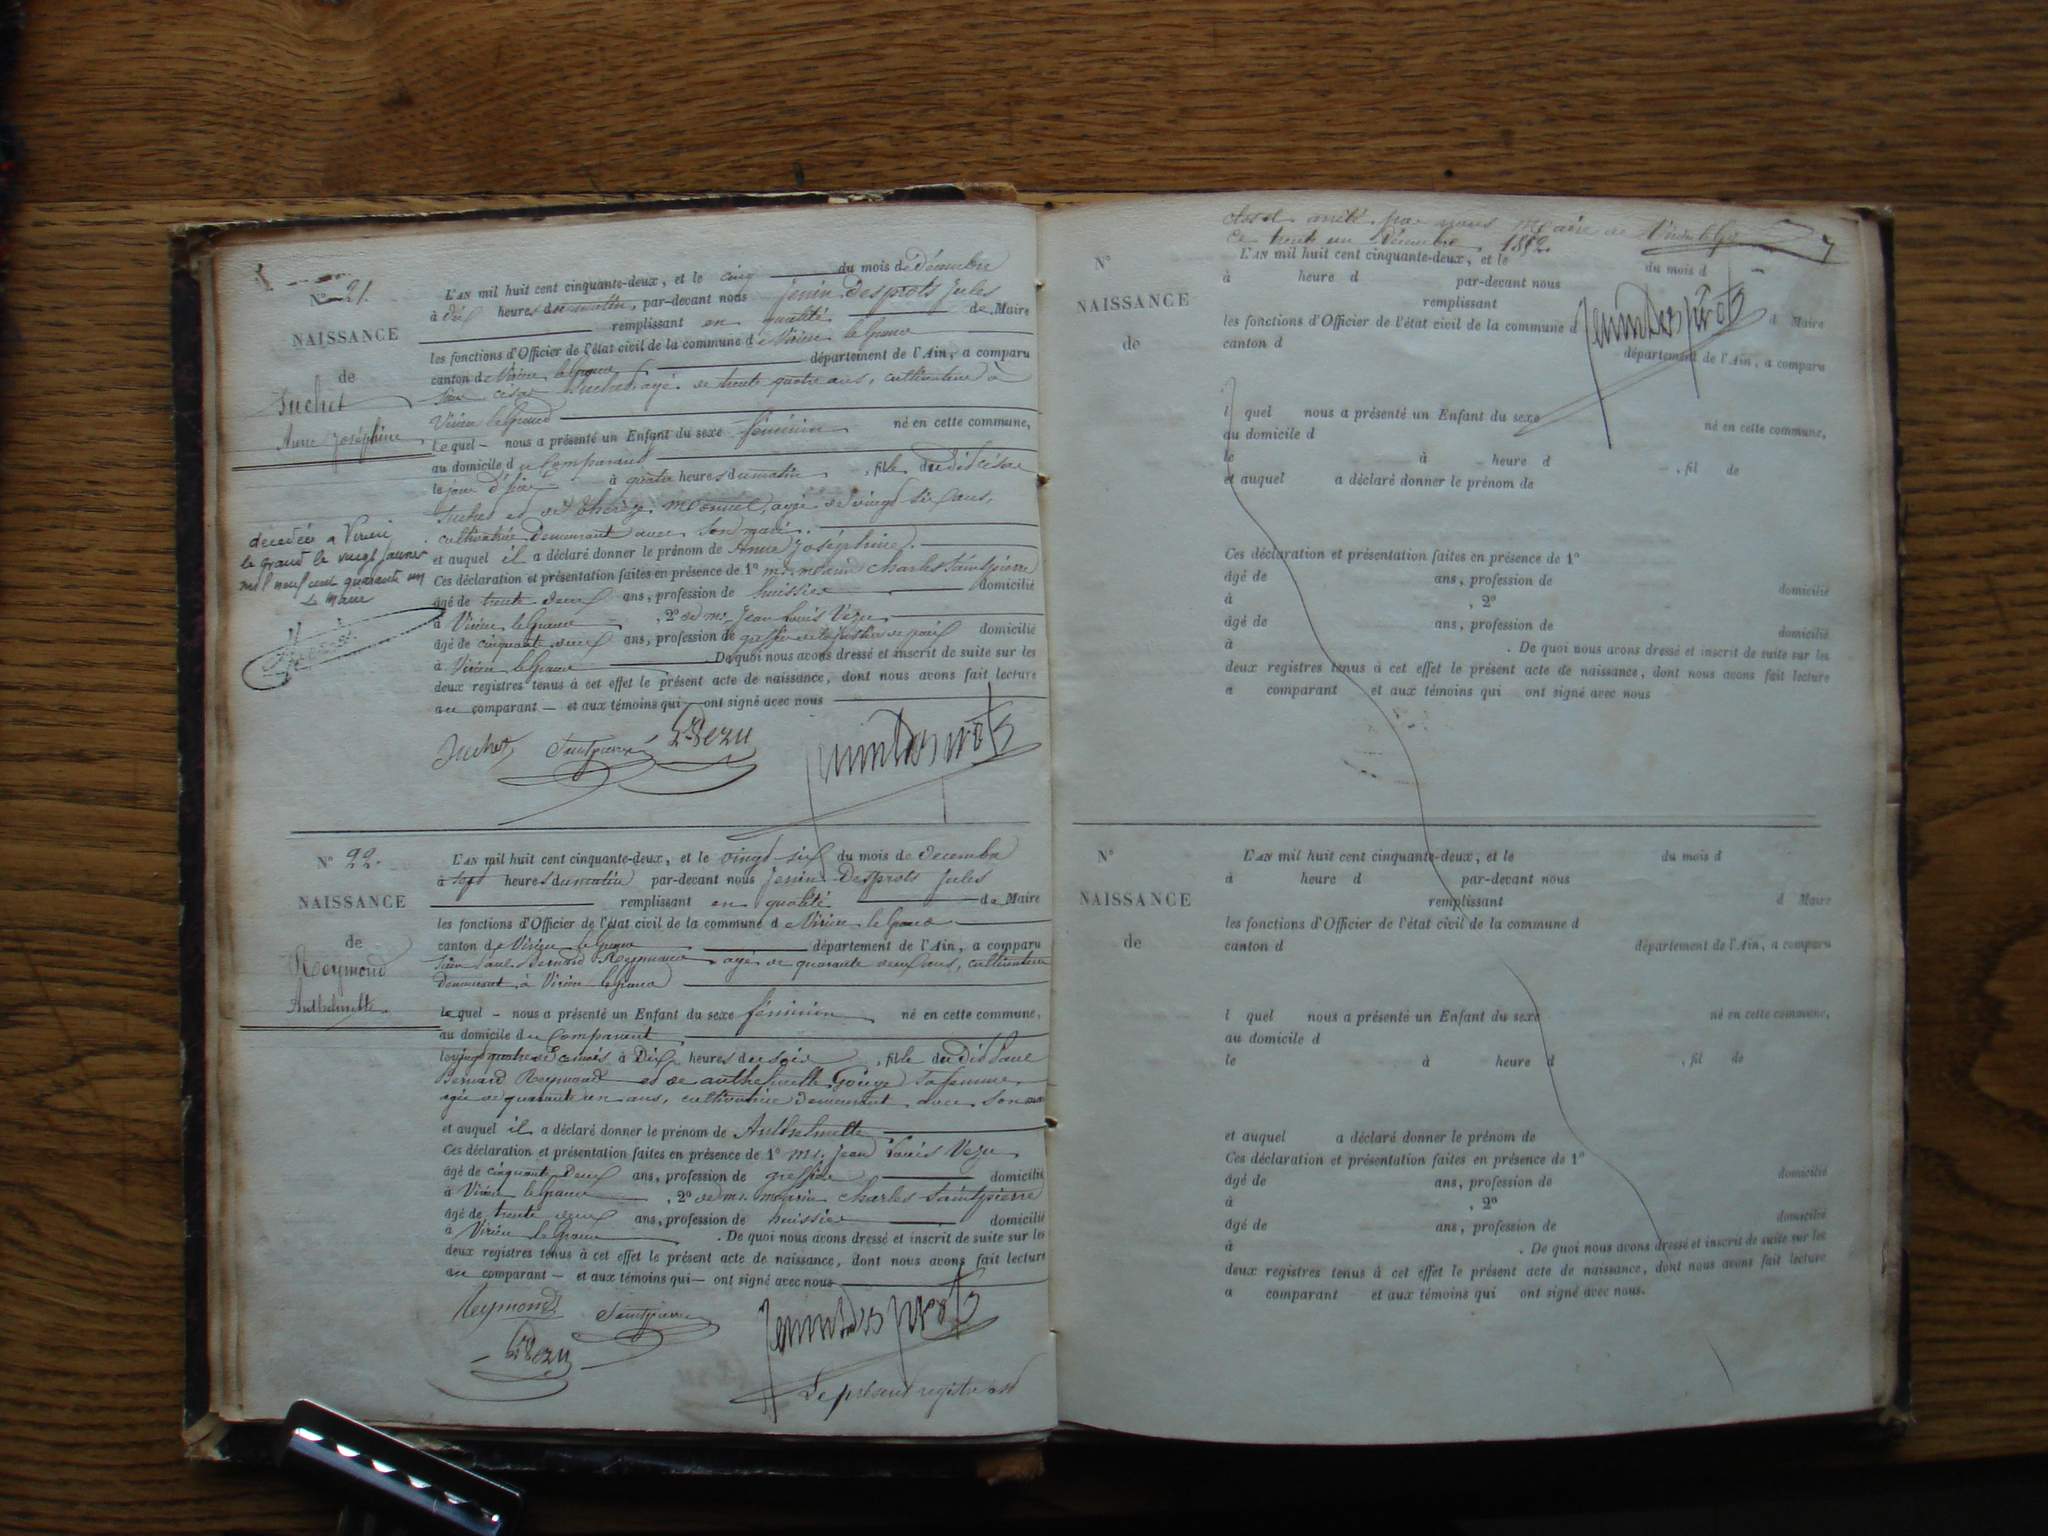 N° 21.
NAISSANCE
de
Suchet
Anne Joséphine
décédée a Virieu
le grand le vingt janvier
mil neuf cent quarante un
Le Maire
L'AN mil huit cent cinquante-deux, et le cinq du mois de Décembre
à dix heures du matin, par-devant nous Jenin Desprots Jules
remplissant en qualité de Maire
les fonctions d'Officier de l'état civil de la commune de Virieu le Grand
canton de Virieu le Grand département de l'Ain, a comparu
Sieur César Suchet agé de trente quatre ans, cultivateur à
Virieu le Grand
Lequel nous a présenté un Enfant du sexe féminin né en cette commune,
au domicile du Comparant
le jour d'hier à quatre heures du matin, fille du dit César
Suchet et de Monnet, agée de vingt six ans,
cultivatrice demeurant avec son mari.
et auquel il a déclaré donner le prénom de Anne Joséphine.
Ces déclaration et présentation faites en présence de 1° mr. Charles Saintpierre
âgé de trente deux ans, profession de huissier domicilié
à Virieu le Grand, 2° de mr. Jean Louis Vezu
âgé de cinquante deux ans, profession de greffier de la justice de paix domicilié
à Virieu le Grand. De quoi nous avons dressé et inscrit de suite sur les
deux registres tenus à cet effet le présent acte de naissance, dont nous avons fait lecture
au comparant et aux témoins qui ont signé avec nous
Suchet Saintpierre Vezu JeninDesprots
N° 22.
NAISSANCE
de
Reymond
Anthelmette
L'AN mil huit cent cinquante-deux, et le vingt six du mois de Décembre
à sept heures du matin par-devant nous Jenin Desprots Jules
remplissant en qualité de Maire
les fonctions d'Officier de l'état civil de la commune de Virieu le Grand
canton de Virieu le Grand département de l'Ain, a comparu
Sieur Paul Bernard Reymond agé de quarante deux ans, cultivateur
demeurant à Virieu le Grand
lequel nous a présenté un Enfant du sexe féminin né en cette commune,
au domicile du Comparant
le vingt quatre de ce mois à Dix heures du soir, fille du dit Paul
Bernard Reymond et de anthelmette Gouge sa femme
agée de quarante un ans, cultivatrice demeurant avec son mari
et auquel il a déclaré donner le prénom de Anthelmette
Ces déclaration et présentation faites en présence de 1° mr. Jean Louis Vezu
âgé de cinquante Deux ans, profession de greffier domicilié
à Virieu le Grand, 2° de mr. Charles Saintpierre
âgé de trente deux ans, profession de huissier domicilié
à Virieu le Grand. De quoi nous avons dressé et inscrit de suite sur les
deux registres tenus à cet effet le présent acte de naissance, dont nous avons fait lecture
au comparant et aux témoins qui ont signé avec nous
Reymond Saintpierre JeninDesprots
Vezu
Le présent registre est
clos et arrêté par nous Maire de Virieu le Gd
ce trente un Décembre 1852.
JeninDesprots
N°
NAISSANCE
de
L'AN mil huit cent cinquante-deux, et le du mois d
à heure d par-devant nous
remplissant d Maire
les fonctions d'Officier de l'état civil de la commune d
canton d département de l'Ain, a comparu
l quel nous a présenté un Enfant du sexe né en cette commune,
au domicile d
le à heure d , fil de
et auquel a déclaré donner le prénom de
Ces déclaration et présentation faites en présence de 1°
âgé de ans, profession de domicilié
à , 2°
âgé de ans, profession de domicilié
à . De quoi nous avons dressé et inscrit de suite sur les
deux registres tenus à cet effet le présent acte de naissance, dont nous avons fait lecture
a comparant et aux témoins qui ont signé avec nous
N°
NAISSANCE
de
L'AN mil huit cent cinquante-deux, et le du mois d
à heure d par-devant nous
remplissant d Maire
les fonctions d'Officier de l'état civil de la commune d
canton d département de l'Ain, a comparu
l quel nous a présenté un Enfant du sexe né en cette commune,
au domicile d
le à heure d , fil de
et auquel a déclaré donner le prénom de
Ces déclaration et présentation faites en présence de 1°
âgé de ans, profession de domicilié
à , 2°
âgé de ans, profession de domicilié
à . De quoi nous avons dressé et inscrit de suite sur les
deux registres tenus à cet effet le présent acte de naissance, dont nous avons fait lecture
a comparant et aux témoins qui ont signé avec nous.